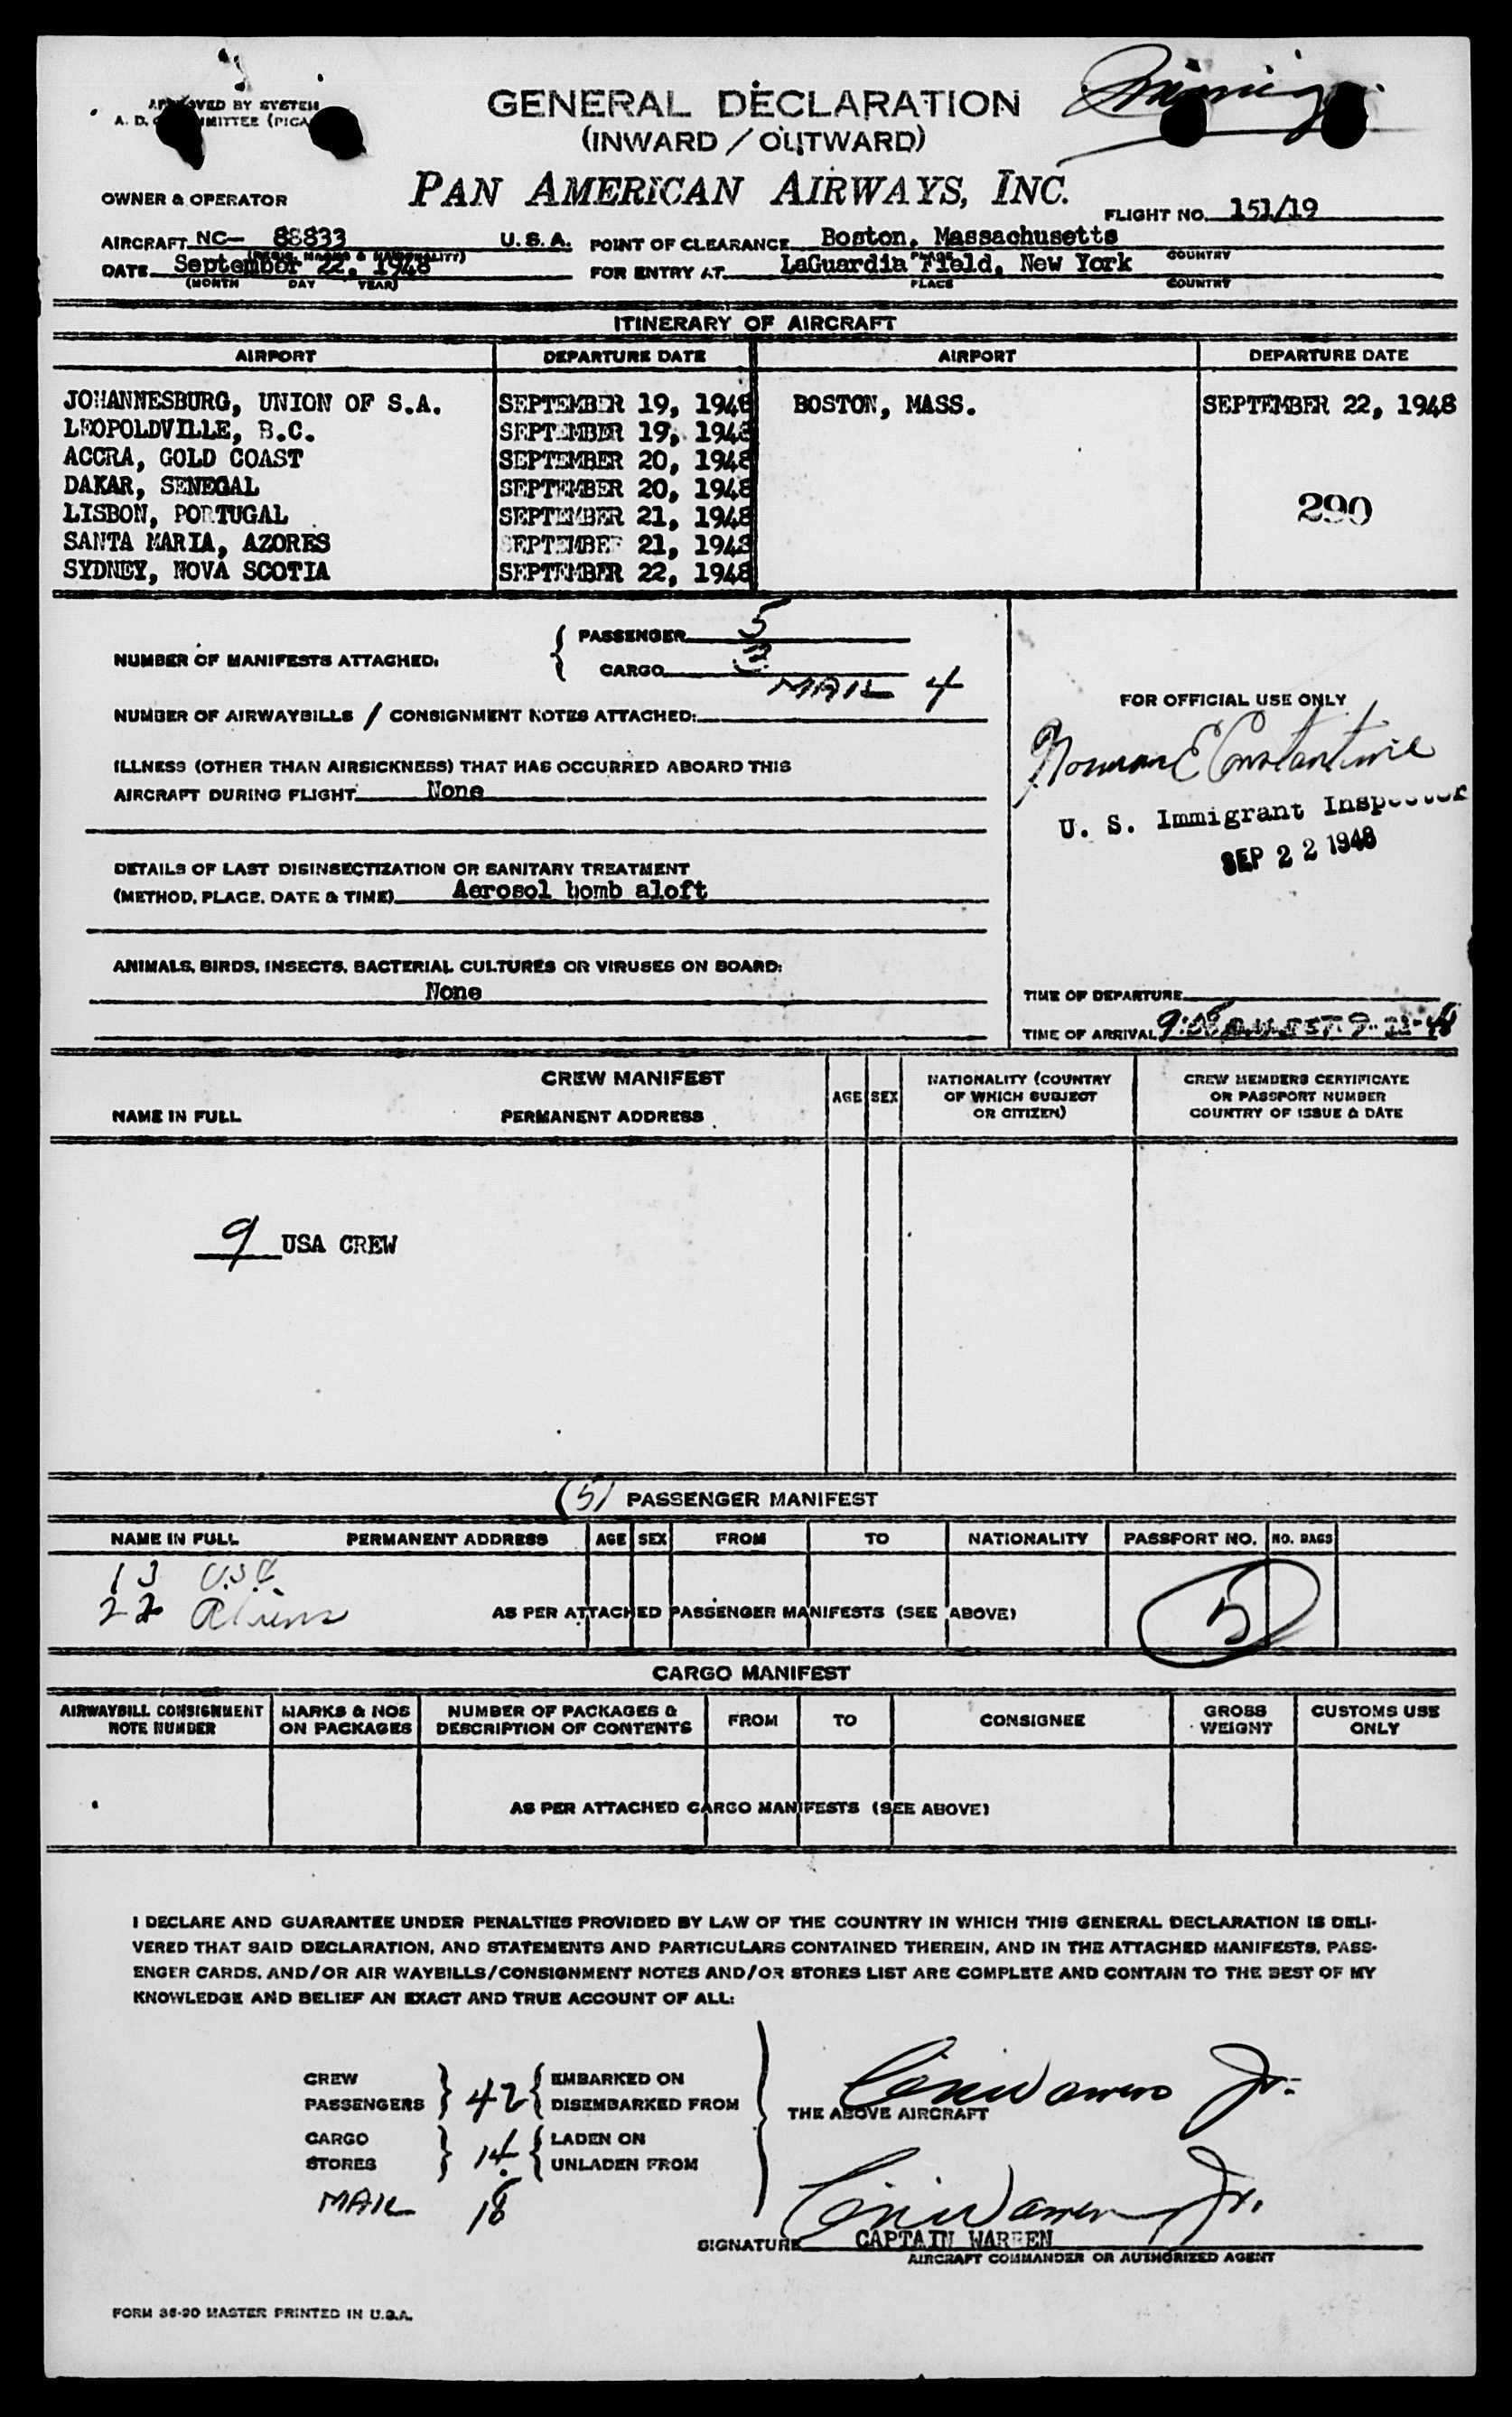 GENERAL DECLARATION
(INWARD / OUTWARD)
PAN AMERICAN AIRWAYS, INC.
OWNER & OPERATOR
FLIGHT NO. 151/19
AIRCRAFT NC- 88833 U. S. A. POINT OF CLEARANCE Boston, Massachusetts
COUNTRY
DATE September 22, 1948 FOR ENTRY AT LaGuardia Field, New York
(MONTH DAY YEAR) PLACE COUNTRY
ITINERARY OF AIRCRAFT
AIRPORT DEPARTURE DATE AIRPORT DEPARTURE DATE
JOHANNESBURG, UNION OF S.A. SEPTEMBER 19, 1948 BOSTON, MASS. SEPTEMBER 22, 1948
LEOPOLDVILLE, B.C. SEPTEMBER 19, 1948
ACCRA, GOLD COAST SEPTEMBER 20, 1948
DAKAR, SENEGAL SEPTEMBER 20, 1948
290
LISBON, PORTUGAL SEPTEMBER 21, 1948
SANTA MARIA, AZORES SEPTEMBER 21, 1948
SYDNEY, NOVA SCOTIA SEPTEMBER 22, 1948
NUMBER OF MANIFESTS ATTACHED: { PASSENGER 5
CARGO 3
MAIL 4
NUMBER OF AIRWAYBILLS / CONSIGNMENT NOTES ATTACHED:
FOR OFFICIAL USE ONLY
Norman E Constantine
U. S. Immigrant Inspector
SEP 22 1948
ILLNESS (OTHER THAN AIRSICKNESS) THAT HAS OCCURRED ABOARD THIS
AIRCRAFT DURING FLIGHT None
DETAILS OF LAST DISINSECTIZATION OR SANITARY TREATMENT
(METHOD, PLACE, DATE & TIME) Aerosol bomb aloft
ANIMALS, BIRDS, INSECTS, BACTERIAL CULTURES OR VIRUSES ON BOARD:
None
TIME OF DEPARTURE
TIME OF ARRIVAL
CREW MANIFEST
NAME IN FULL PERMANENT ADDRESS AGE SEX NATIONALITY (COUNTRY OF WHICH SUBJECT OR CITIZEN) CREW MEMBERS CERTIFICATE OR PASSPORT NUMBER COUNTRY OF ISSUE & DATE
9 USA CREW
(5) PASSENGER MANIFEST
NAME IN FULL PERMANENT ADDRESS AGE SEX FROM TO NATIONALITY PASSPORT NO. NO. BAGS
1 3 U.S.C.
2 2 Aliens AS PER ATTACHED PASSENGER MANIFESTS (SEE ABOVE) 5
CARGO MANIFEST
AIRWAYBILL CONSIGNMENT NOTE NUMBER MARKS & NOS ON PACKAGES NUMBER OF PACKAGES & DESCRIPTION OF CONTENTS FROM TO CONSIGNEE GROSS WEIGHT CUSTOMS USE ONLY
AS PER ATTACHED CARGO MANIFESTS (SEE ABOVE)
I DECLARE AND GUARANTEE UNDER PENALTIES PROVIDED BY LAW OF THE COUNTRY IN WHICH THIS GENERAL DECLARATION IS DELI-
VERED THAT SAID DECLARATION, AND STATEMENTS AND PARTICULARS CONTAINED THEREIN, AND IN THE ATTACHED MANIFESTS, PASS-
ENGER CARDS, AND/OR AIR WAYBILLS/CONSIGNMENT NOTES AND/OR STORES LIST ARE COMPLETE AND CONTAIN TO THE BEST OF MY
KNOWLEDGE AND BELIEF AN EXACT AND TRUE ACCOUNT OF ALL:
CREW PASSENGERS } 42 { EMBARKED ON DISEMBARKED FROM
THE ABOVE AIRCRAFT
CARGO STORES } 14 { LADEN ON UNLADEN FROM
MAIL 18
SIGNATURE CAPTAIN WARREN
AIRCRAFT COMMANDER OR AUTHORIZED AGENT
FORM 36-90 MASTER PRINTED IN U.S.A.